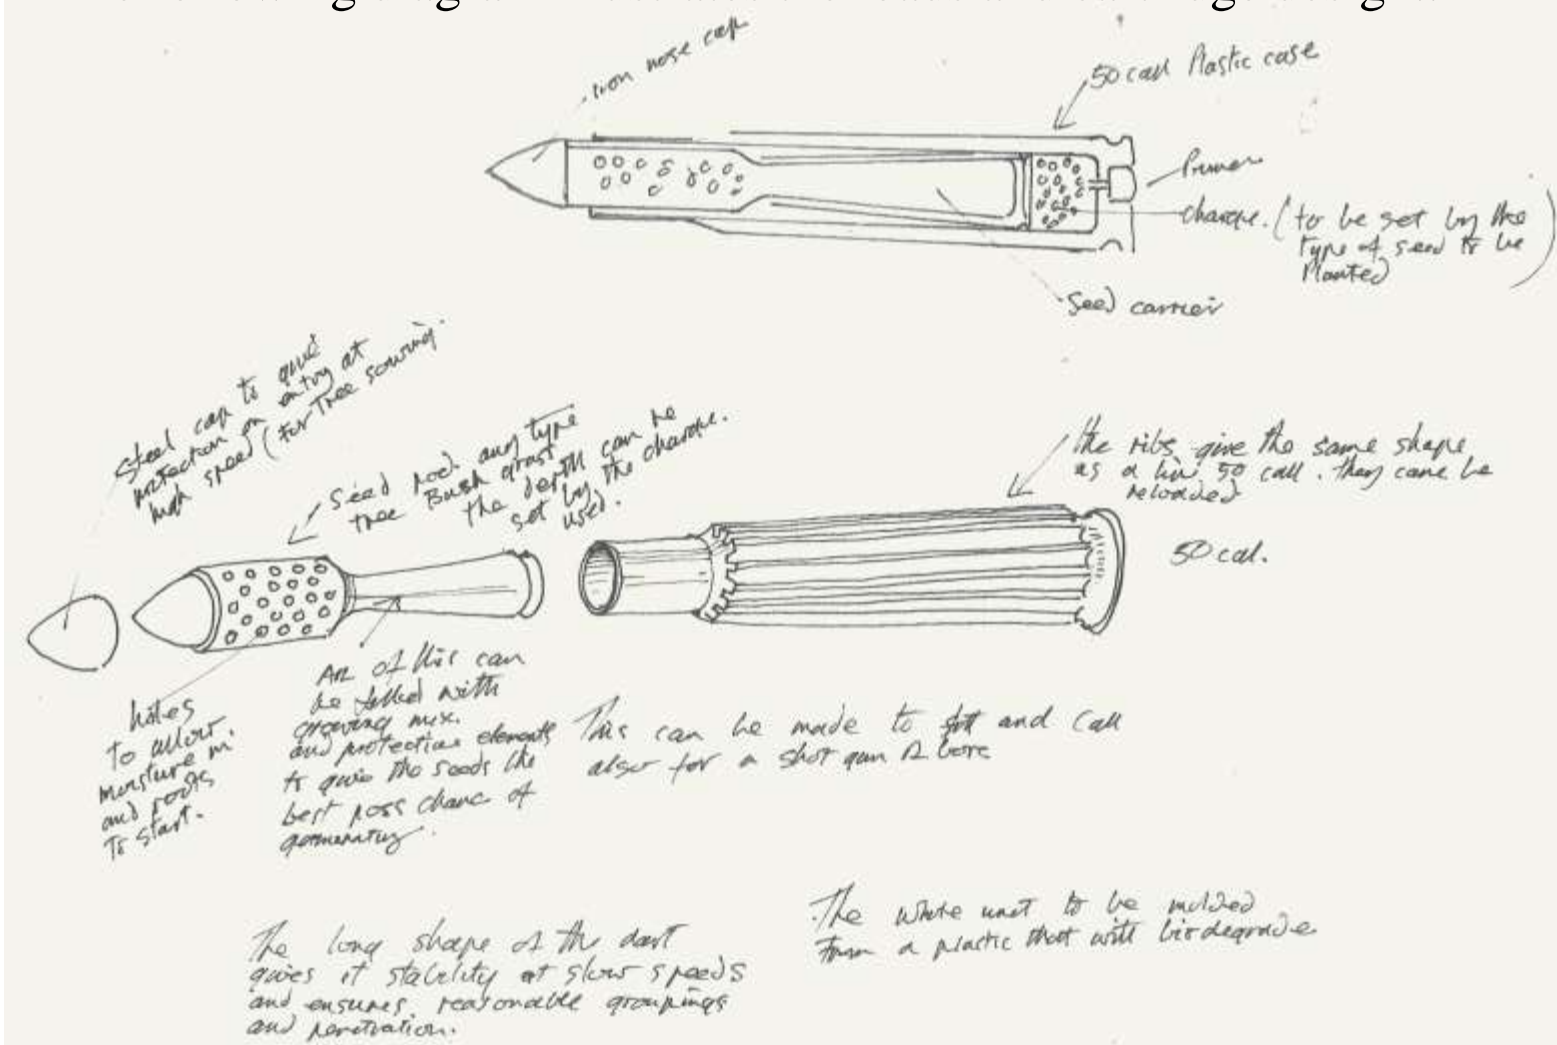 Iron nose cap
50 call Plastic case
Primer
charge. (to be set by the
type of seed to be
Planted)
Seed carrier
Steel cap to give
protection on entry at
high speed (for Tree sowing.
Seed pod. any type
tree Bush grass
the depth can be
set by the charge.
used.
the ribs give the same shape
as a live 50 call. they cane be
reloaded
50 cal.
holes
to allow
moisture in.
and roots
to start.
ALL of this can
be filled with
growing mix.
and protective elements
to give the seeds the
best poss chance of
germenating.
This can be made to and call
also for a shot gun 12 bore
The whole unit to be molded
from a plastic that will biodegrade
The long shape of the dart
gives it stability at slow speeds
and ensures. reasonable groupings
and penetration.